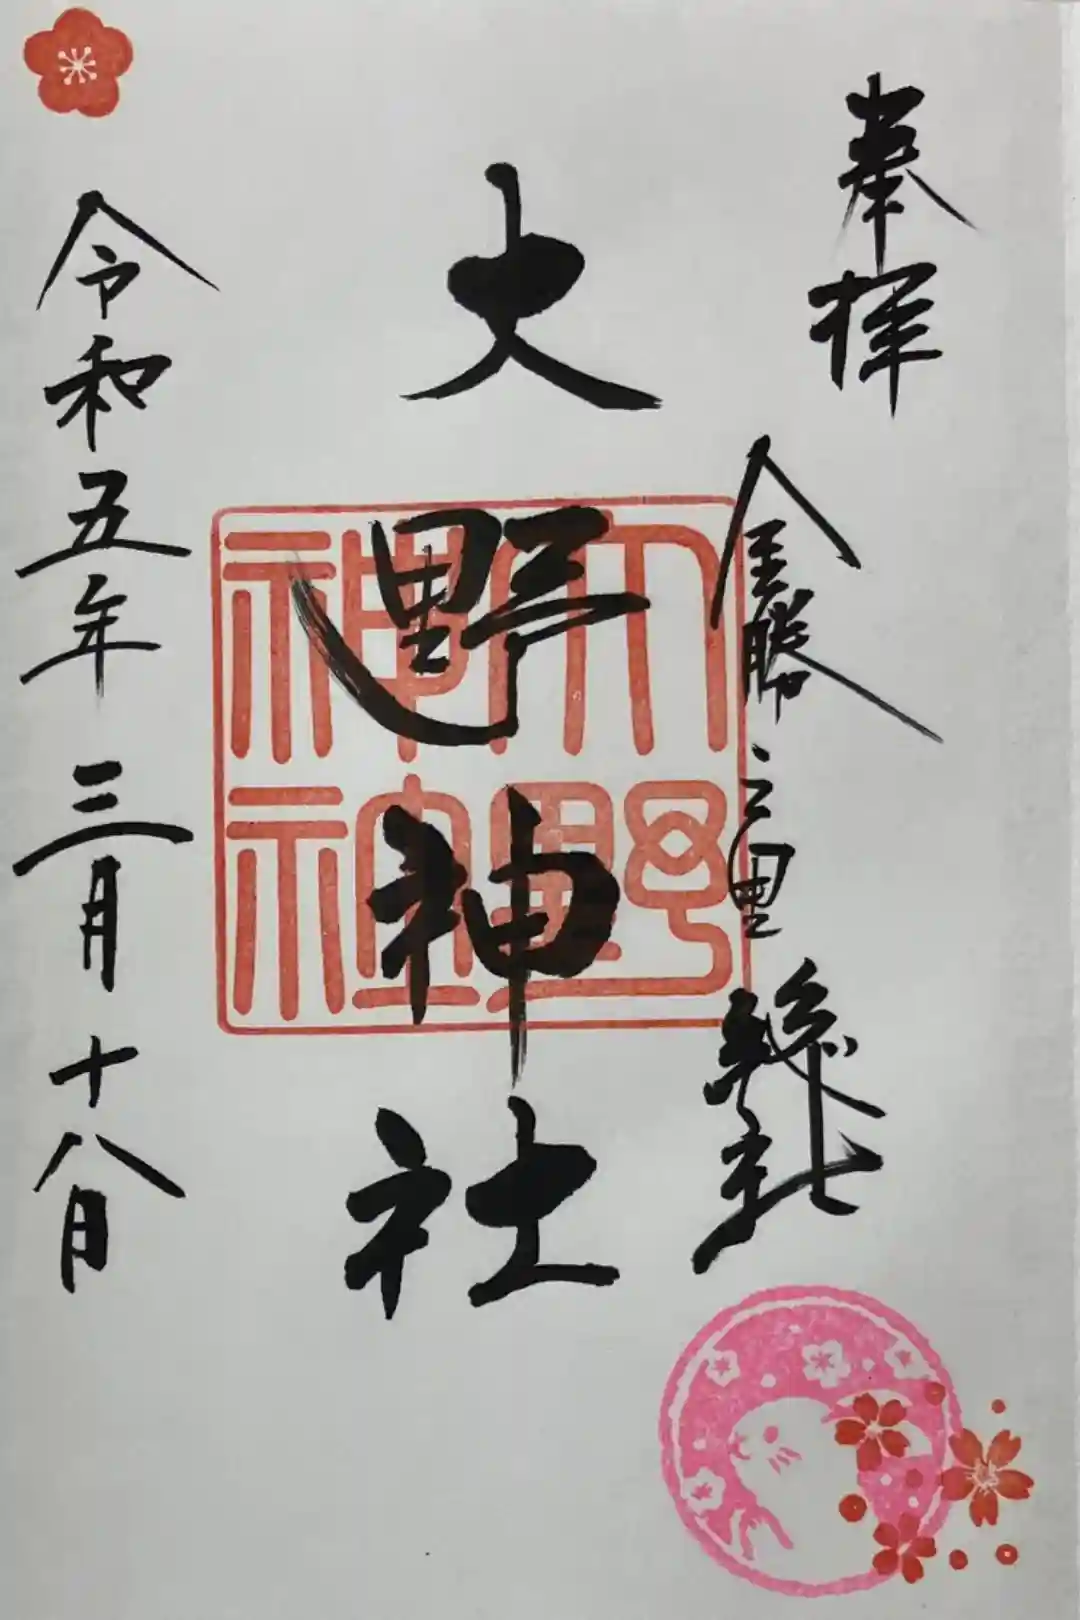 奉拝
金勝之里 総社
大野神社
大野
神社
令和五年三月十八日